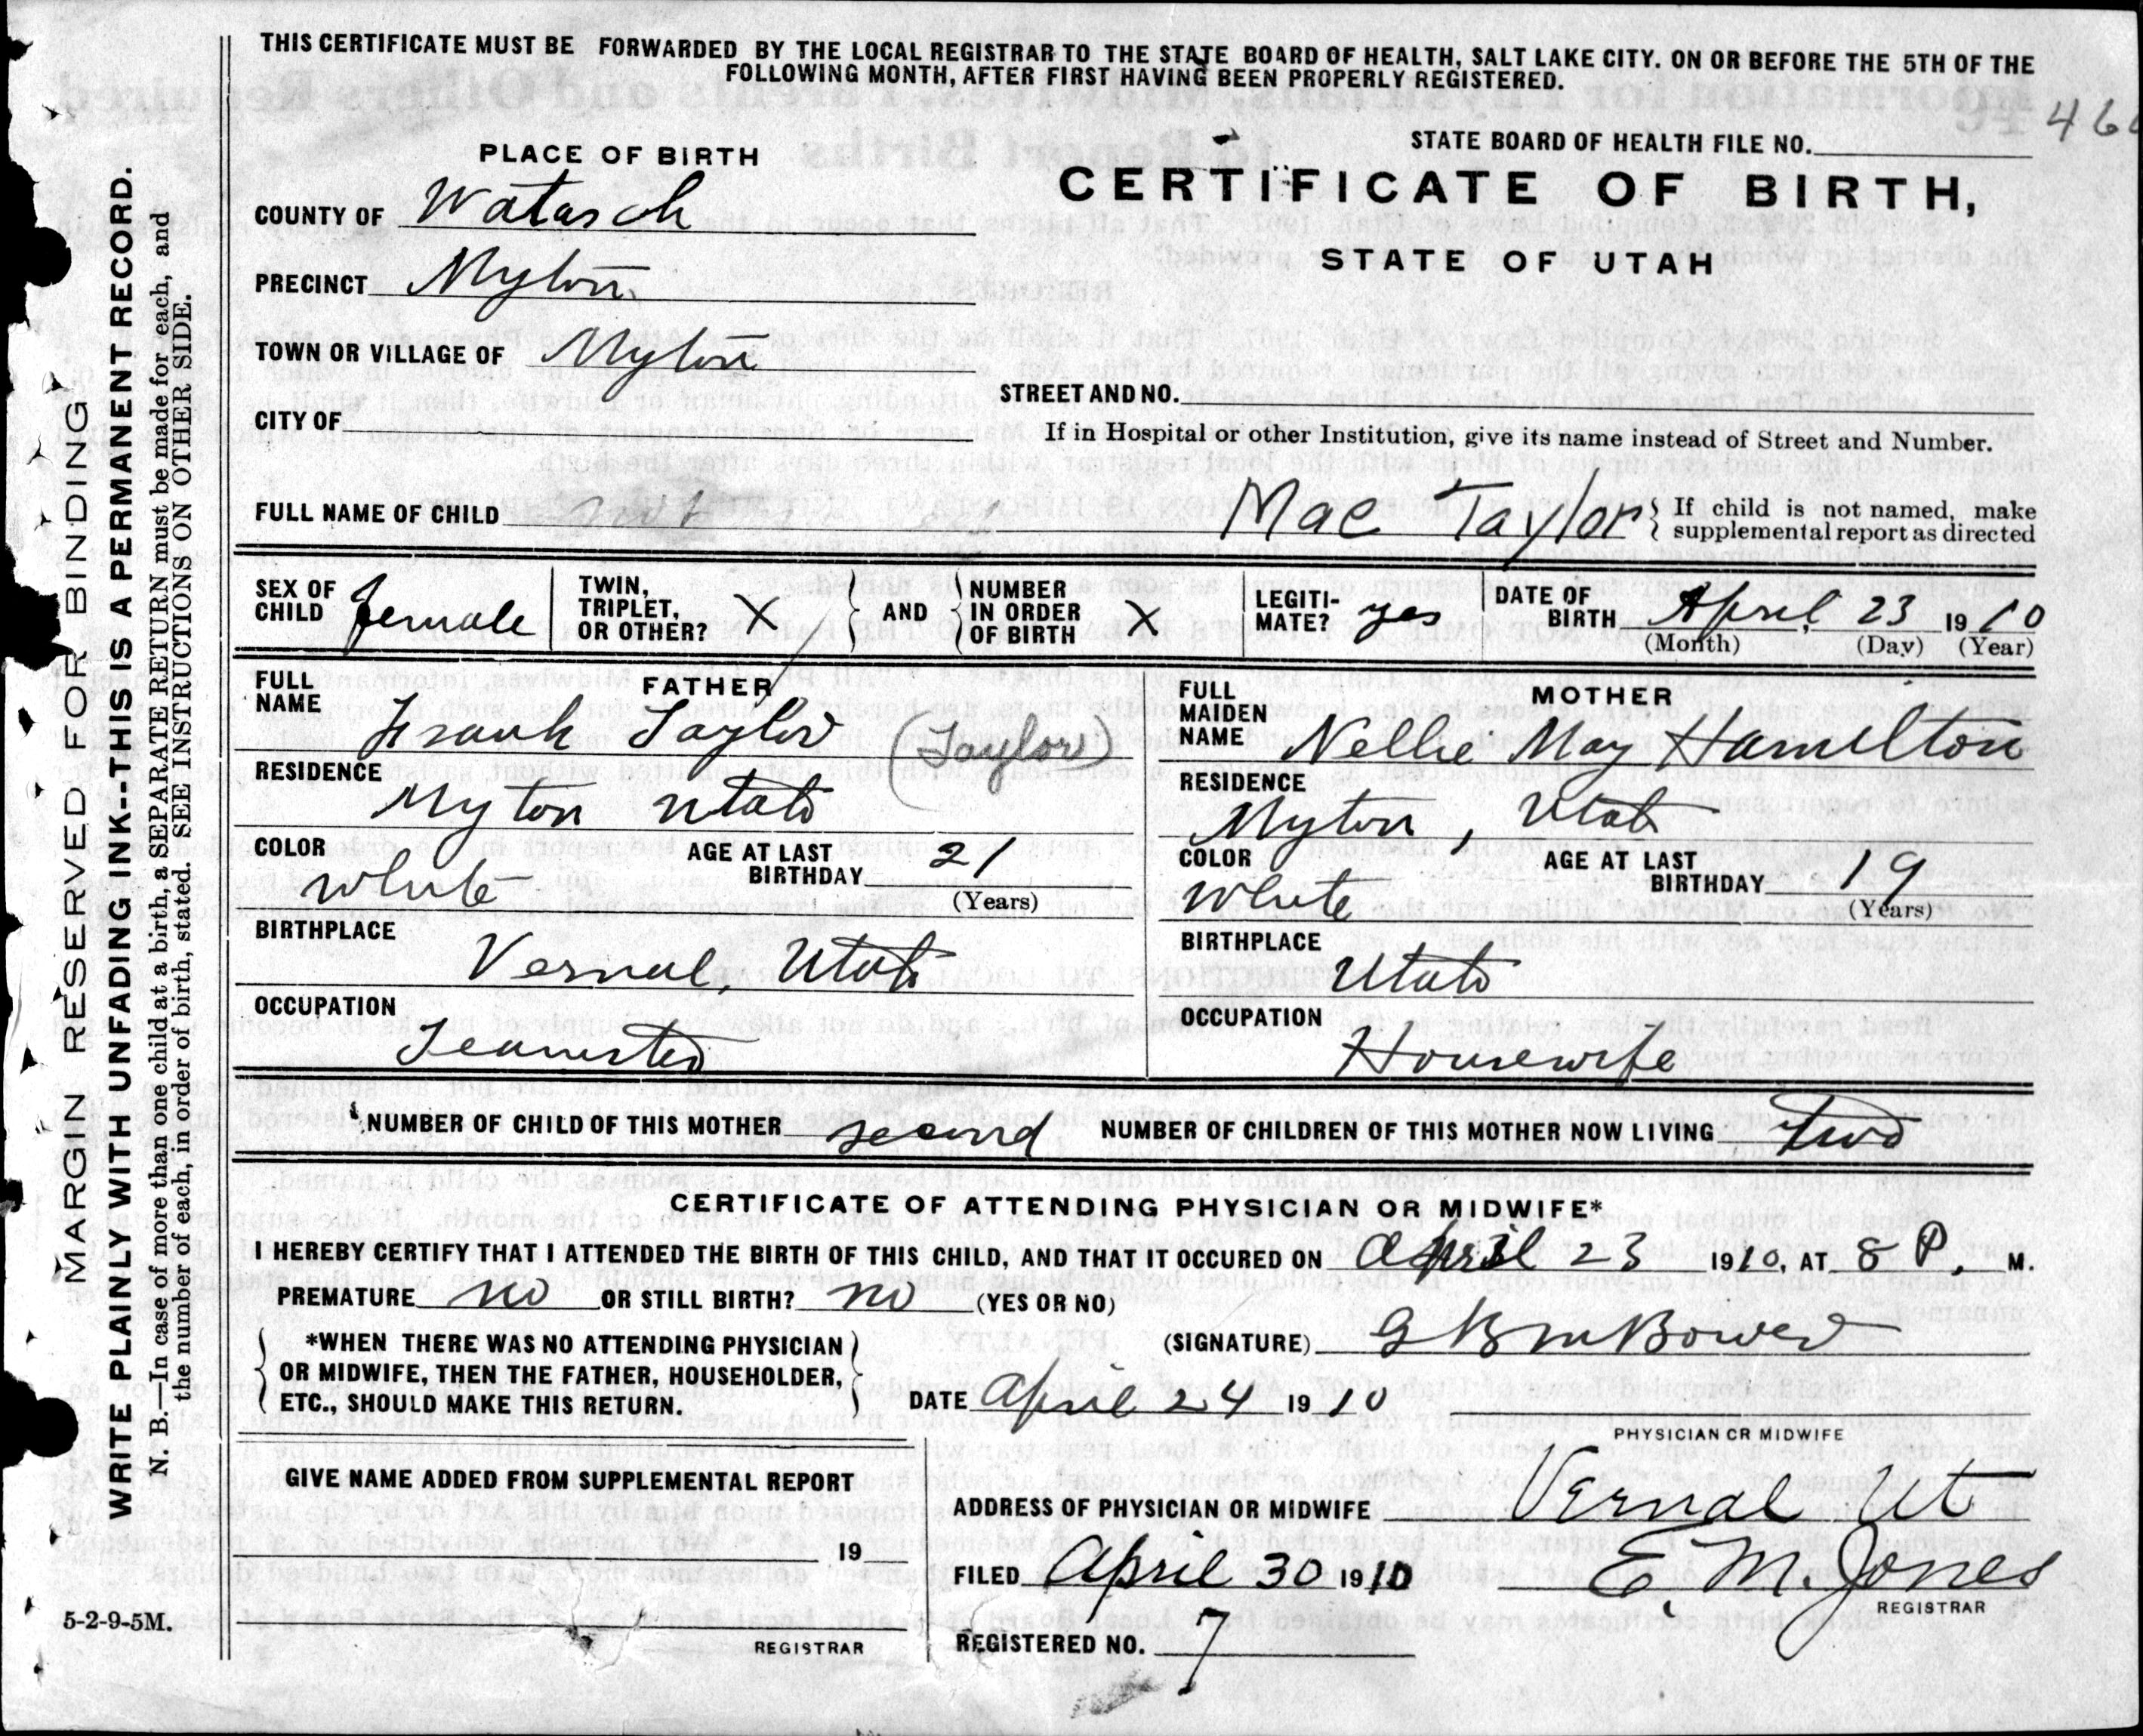 THIS CERTIFICATE MUST BE FORWARDED BY THE LOCAL REGISTRAR TO THE STATE BOARD OF HEALTH, SALT LAKE CITY. ON OR BEFORE THE 5TH OF THE
FOLLOWING MONTH, AFTER FIRST HAVING BEEN PROPERLY REGISTERED.
STATE BOARD OF HEALTH FILE NO. 94 46
PLACE OF BIRTH
CERTIFICATE OF BIRTH,
STATE OF UTAH
COUNTY OF Watasch
PRECINCT Myton
TOWN OR VILLAGE OF Myton
STREET AND NO.
CITY OF
If in Hospital or other Institution, give its name instead of Street and Number.
FULL NAME OF CHILD Mae Taylor { If child is not named, make
supplemental report as directed
SEX OF CHILD female TWIN, TRIPLET, OR OTHER? X } AND { NUMBER IN ORDER OF BIRTH X LEGITI- MATE? yes DATE OF BIRTH April 23 1910
(Month) (Day) (Year)
FATHER
FULL NAME Frank Taylor (Taylor)
RESIDENCE
Myton Utah
COLOR White AGE AT LAST BIRTHDAY 21
(Years)
BIRTHPLACE
Vernal, Utah
OCCUPATION
Teamster
MOTHER
FULL MAIDEN NAME Nellie May Hamilton
RESIDENCE
Myton, Utah
COLOR White AGE AT LAST BIRTHDAY 19
(Years)
BIRTHPLACE
Utah
OCCUPATION
Housewife
NUMBER OF CHILD OF THIS MOTHER second NUMBER OF CHILDREN OF THIS MOTHER NOW LIVING Two
CERTIFICATE OF ATTENDING PHYSICIAN OR MIDWIFE*
I HEREBY CERTIFY THAT I ATTENDED THE BIRTH OF THIS CHILD, AND THAT IT OCCURED ON April 23 1910, AT 8 P. M.
PREMATURE no OR STILL BIRTH? no (YES OR NO)
{ *WHEN THERE WAS NO ATTENDING PHYSICIAN
OR MIDWIFE, THEN THE FATHER, HOUSEHOLDER,
ETC., SHOULD MAKE THIS RETURN. }
(SIGNATURE)
DATE April 24 1910
PHYSICIAN OR MIDWIFE
GIVE NAME ADDED FROM SUPPLEMENTAL REPORT
19
REGISTRAR
ADDRESS OF PHYSICIAN OR MIDWIFE Vernal Ut
FILED April 30 1910 E. M. Jones
REGISTRAR
REGISTERED NO. 7
5-2-9-5M.
MARGIN RESERVED FOR BINDING
WRITE PLAINLY WITH UNFADING INK--THIS IS A PERMANENT RECORD.
N. B.—In case of more than one child at a birth, a SEPARATE RETURN must be made for each, and
the number of each, in order of birth, stated. SEE INSTRUCTIONS ON OTHER SIDE.